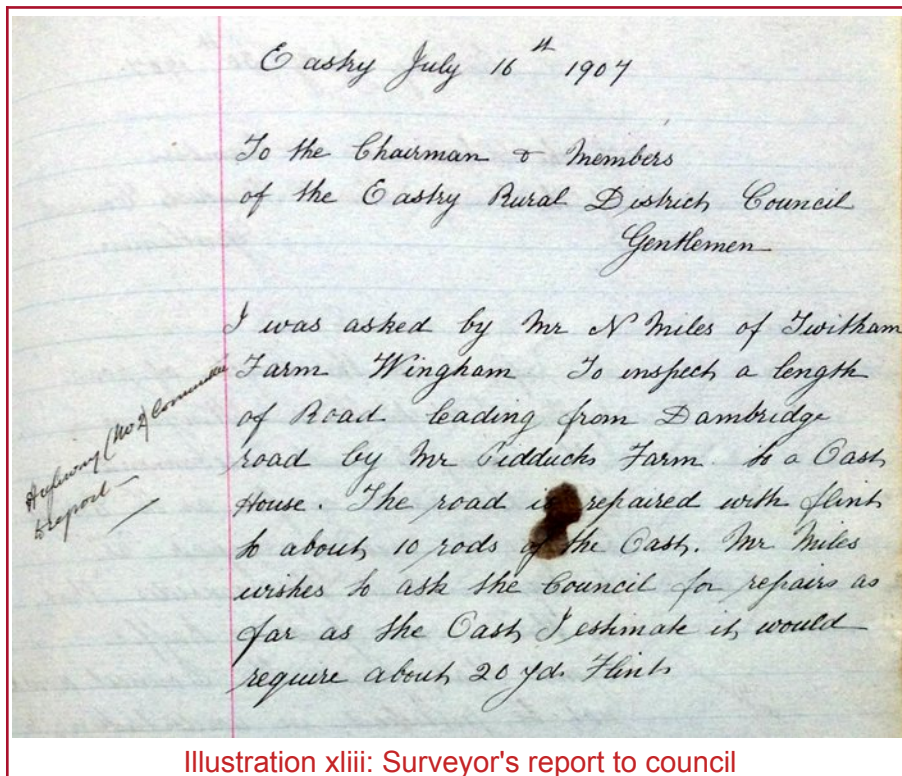 Eastry July 16th 1907
To the Chairman & Members
of the Eastry Rural District Council
Gentlemen
I was asked by Mr N Miles of Twitham
Farm Wingham To inspect a length
of Road leading from Dambridge
road by Mr Pidducks Farm. to a Oast
House. The road is repaired with flint
to about 10 rods of the Oast. Mr Miles
wishes to ask the Council for repairs as
far as the Oast, I estimate it would
require about 20 yds Flint
Highway (No 2) Committee
to report —
Illustration xliii: Surveyor's report to council